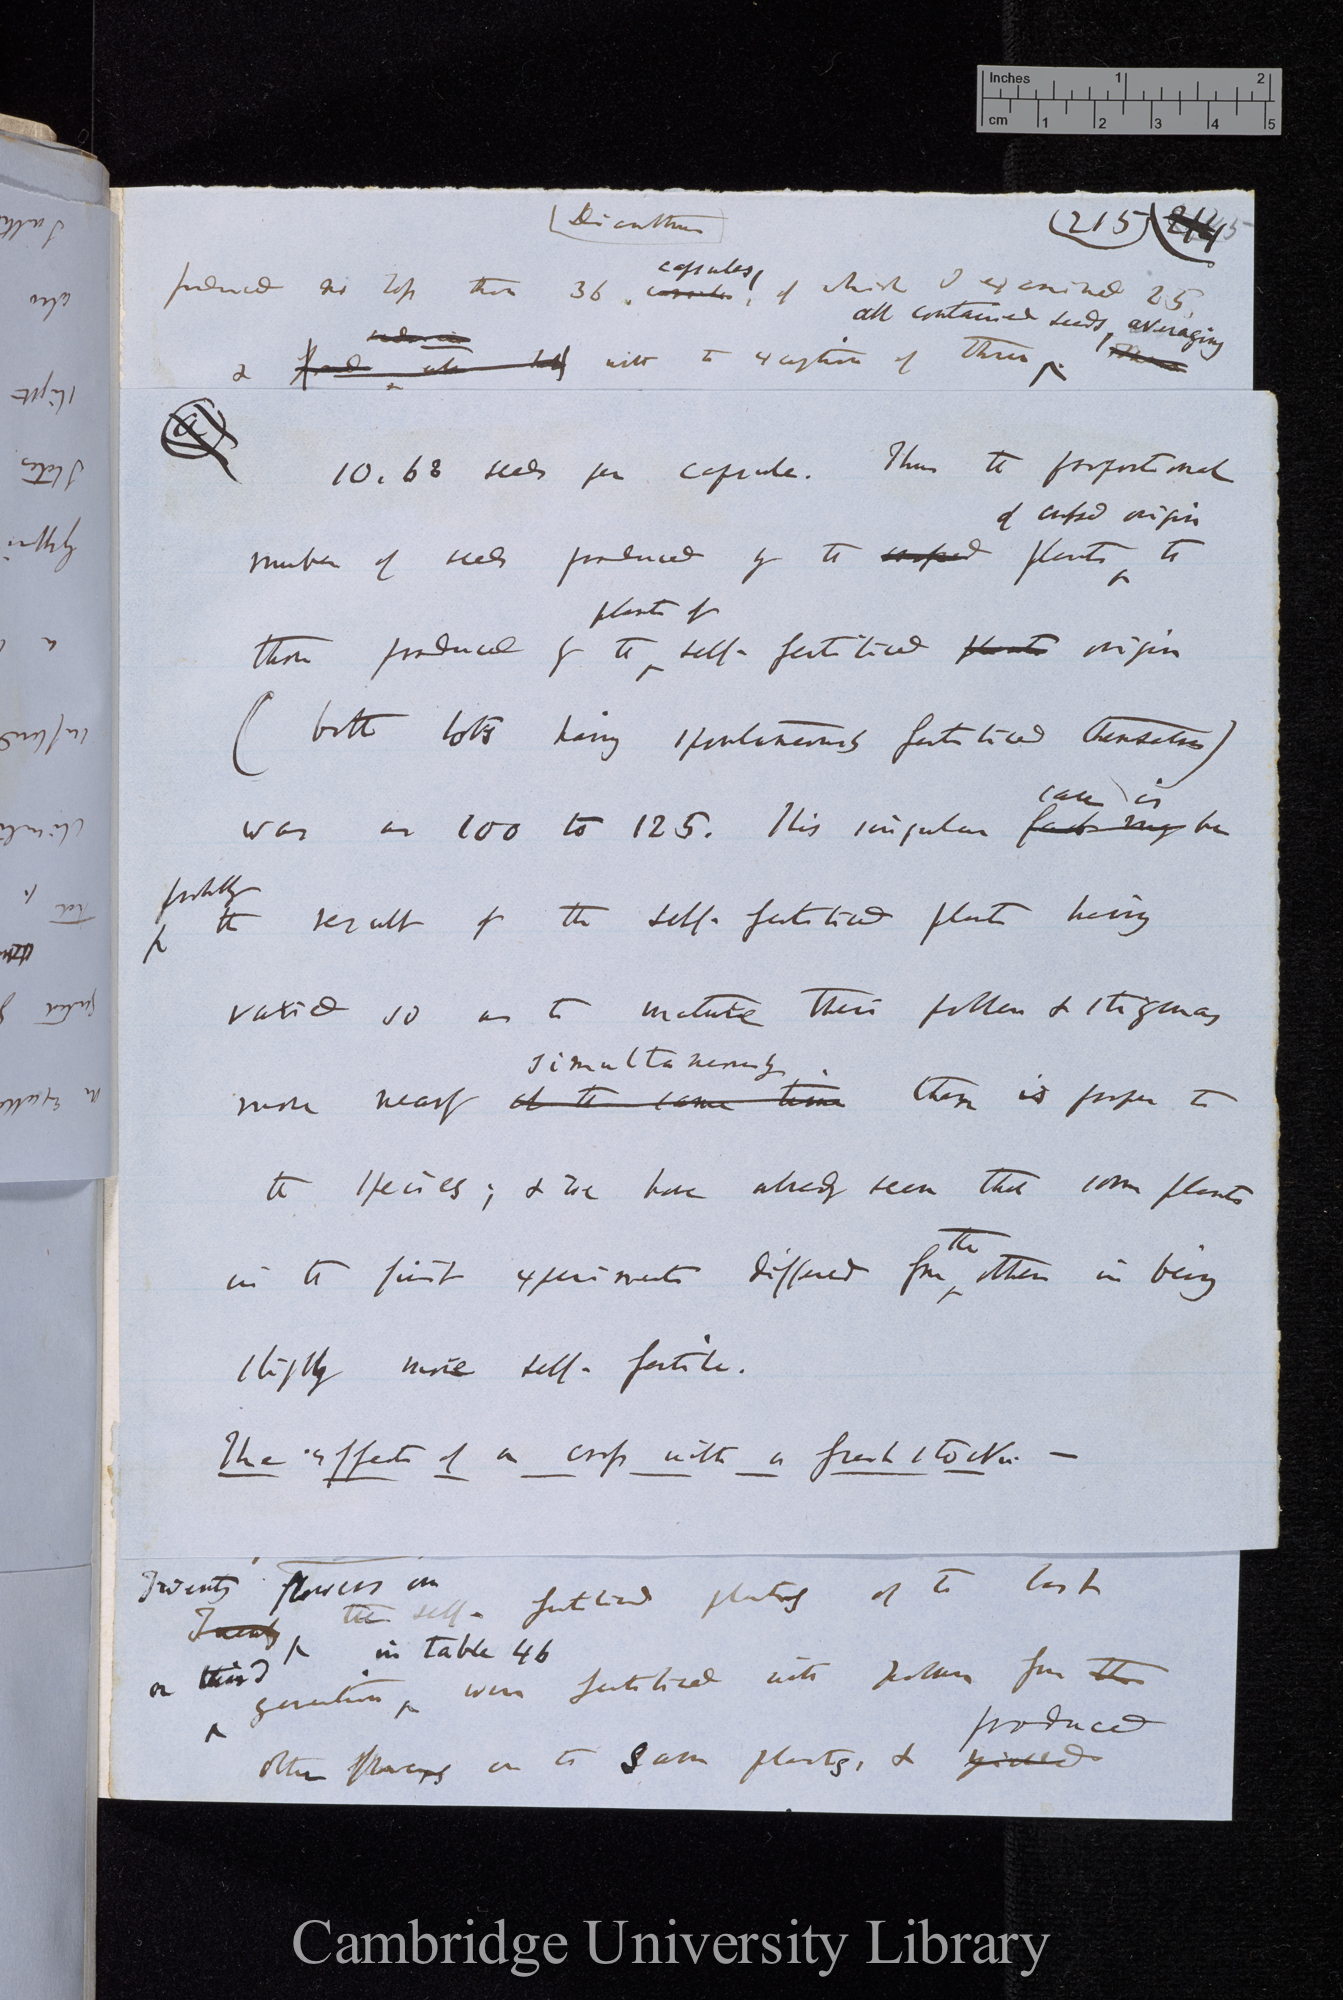 Inches 1 2
cm 1 2 3 4 5
Dianthus
(215)
capsules,
produced no less than 36 of which I examined 25,
all contained seeds, averaging
& with the exception of three
10.68 seeds per capsule. Thus the proportional
of crossed origin
number of seeds produced by the crossed plants, to
plants of
those produced by the self-fertilised plants origin
(both lots having spontaneously fertilised themselves)
was as 100 to 125. This singular
case is
facts may be
probably
the result of the self-fertilised plants having
varied so as to mature their pollen & stigmas
simultaneously
more nearly at the same time than is proper to
the species; & we have already seen that some plants
the
in the first experiments differed from others in being
slightly more self-fertile.
The effects of a cross with a fresh stock. —
Twenty flowers on
Twenty the self-fertilised plants of the last
in table 46
or third
generation, were fertilised with pollen from the
produced
other flowers on the same plants, & yielded
Cambridge University Library